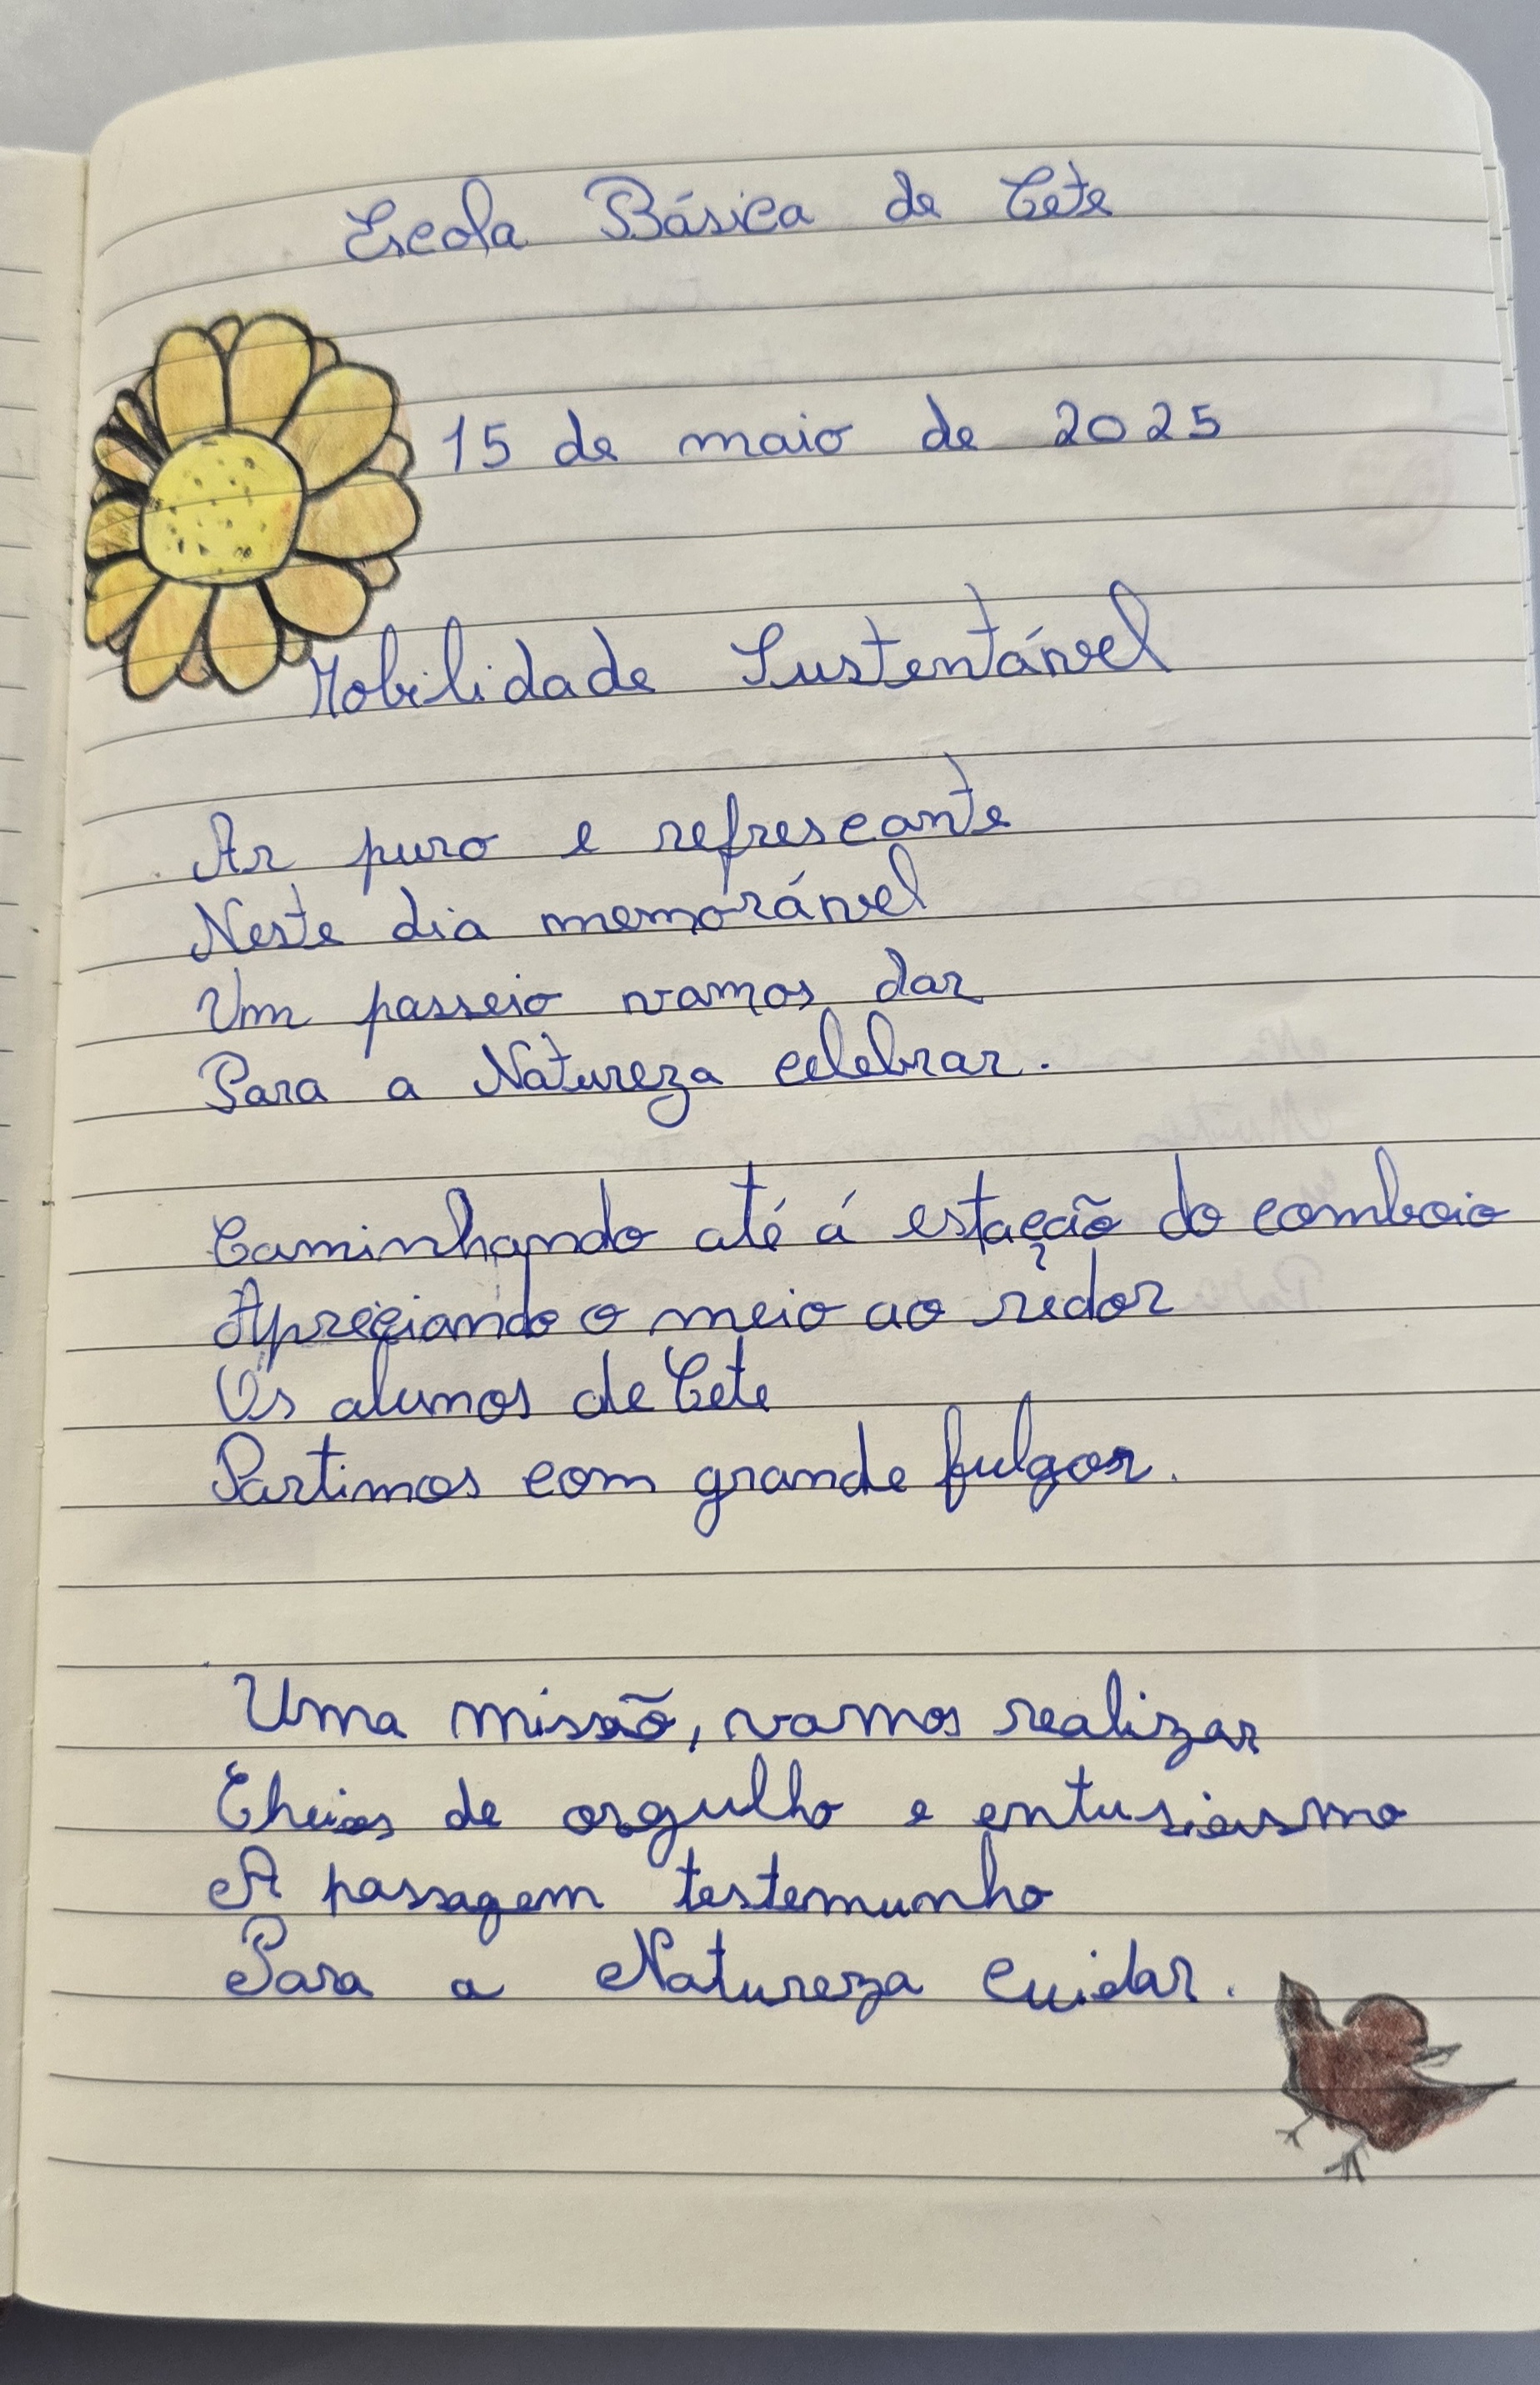 Escola Básica de Cete
15 de maio de 2025
Mobilidade Sustentável
Ar puro e refrescante
Neste dia memorável
Um passeio vamos dar
Para a Natureza celebrar.
Caminhando até á estação do comboio
Apreçiando o meio ao redor
Os alunos de Cete
Partimos com grande fulgor.
Uma missão, vamos realizar
Cheios de orgulho e entusiasmo
A passagem testemunho
Para a Natureza cuidar.